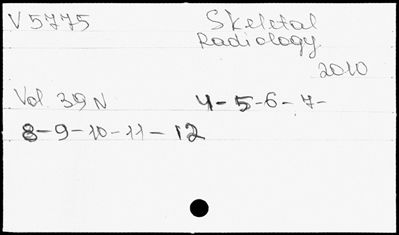 V5775 Skeletal
Radiology
2010
Vol 39 N 4-5-6-7-
8-9-10-11-12